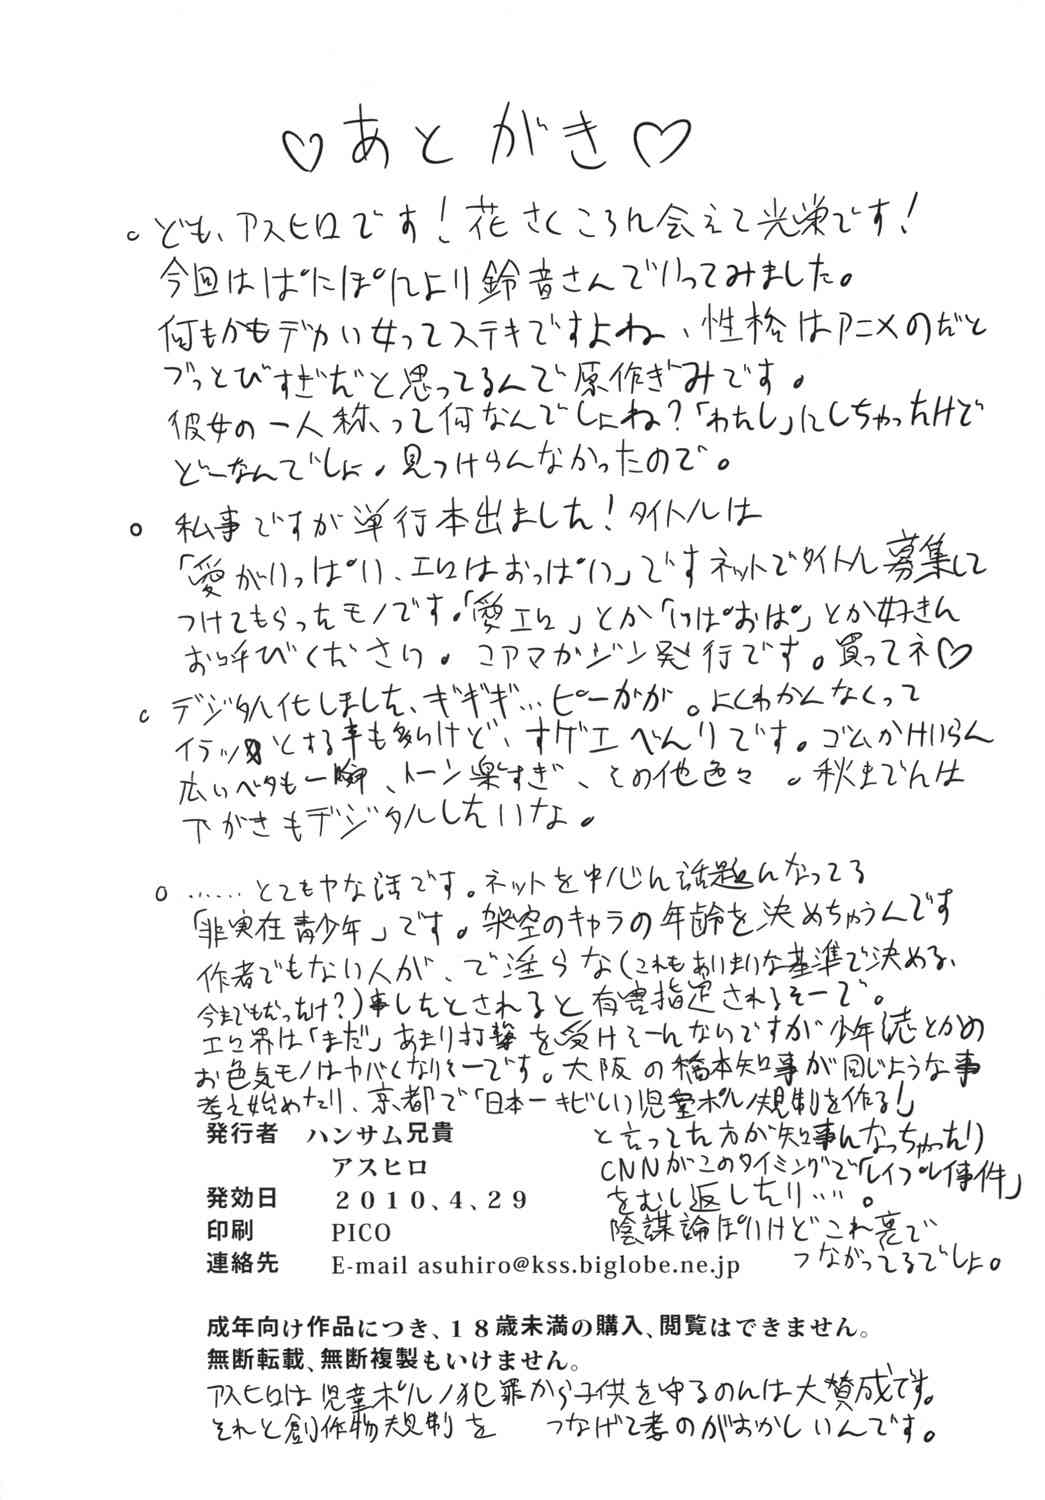 ♡あとがき♡
○ ども、アスヒロです!花さくころに会えて光栄です!
今回はぱにぽにより鈴音さんでいってみました。
何もかもデカい女ってステキですよね、性格はアニメのだと
ブっとびすぎだと思ってるんで原作ぎみです。
彼女の一人称って何なんでしょね?「わたし」にしちゃったけど
どーなんでしょ。見つけらんなかったので。
○ 私事ですが単行本出ました!タイトルは
「愛がいっぱい、エロはおっぱい」ですネットでタイトル募集して
つけてもらったモノです。「愛エロ」とか「いぱおぱ」とか好きに
お呼びください。コアマガジン発行です。買ってネ♡
○ デジタル化しました、ギギギ…ピーガガ。よくわかんなくって
イラッとする事も多いけど、すゲエべんりです。ゴムかけいらん
広いベタも一瞬、トーン楽すぎ、その他色々。秋までには
下がきもデジタルしたいな。
○ ……とてもヤな話です。ネットを中心に話題になってる
「非実在青少年」です。架空のキャラの年齢を決めちゃうんです
作者でもない人が、で淫らな(これもあいまいな基準で決める、
今までもだっけ?)事したとされると有害指定されるそーで。
エロ界は「まだ」あまり打撃を受けそーにないですが少年誌とかの
お色気モノはヤバくなりそーです。大阪の橋本知事が同じような事
考え始めたり、京都で「日本一キビしい児童ポルノ規制を作る!」
と言ってた方が知事になっちゃったり
CNNがこのタイミングで「レイプレイ事件」
をむし返したり…。
陰謀論ぽいけどこれ裏で
つながってるでしょ。
発行者 ハンサム兄貴
アスヒロ
発効日 2010、4、29
印刷 PICO
連絡先 E-mail asuhiro@kss.biglobe.ne.jp
成年向け作品につき、18歳未満の購入、閲覧はできません。
無断転載、無断複製もいけません。
アスヒロは児童ポルノ犯罪から子供を守るのには大賛成です。
それと創作物規制を つなげて考のがおかしいんです。